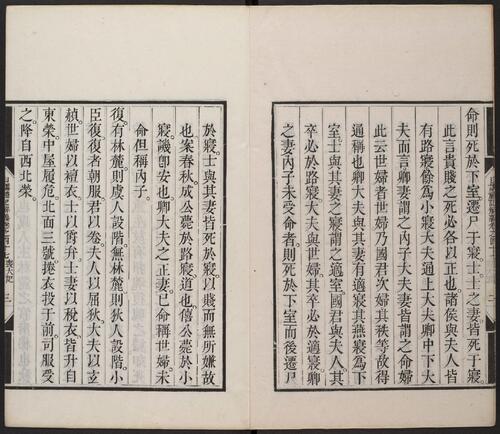 命則死於下室。遷尸于寢。士士之妻皆死于寢。
此言貴賤之死必各以正也。諸侯與夫人皆
有路寢餘爲小寢大夫通上大夫卿中下大
夫而言卿妻謂之內子大夫妻皆謂之命婦
此云世婦者世婦乃國君次婦其秩等故得
通稱也卿大夫與其妻有適寢其燕寢爲下
室士與其妻之寢謂之適室國君與夫人其
卒必於路寢大夫與世婦其卒必於適寢卿
之妻內子未受命者則死於下室而後遷尸
於寢士與其妻皆死於寢以賤而無所嫌故
也案春秋成公薨於路寢道也僖公薨於小
寢譏卽安也大夫之正妻已命稱世婦未
命但稱內子。
復。有林麓則虞人設階無林麓則狄人設階。小
臣復復者朝服。君以卷。夫人以屈狄大夫以玄
赬世婦以襢衣士以爵弁。士妻以稅衣皆升自
東榮。中屋履危。北面三號。捲衣投于前司服受
之降自西北榮。